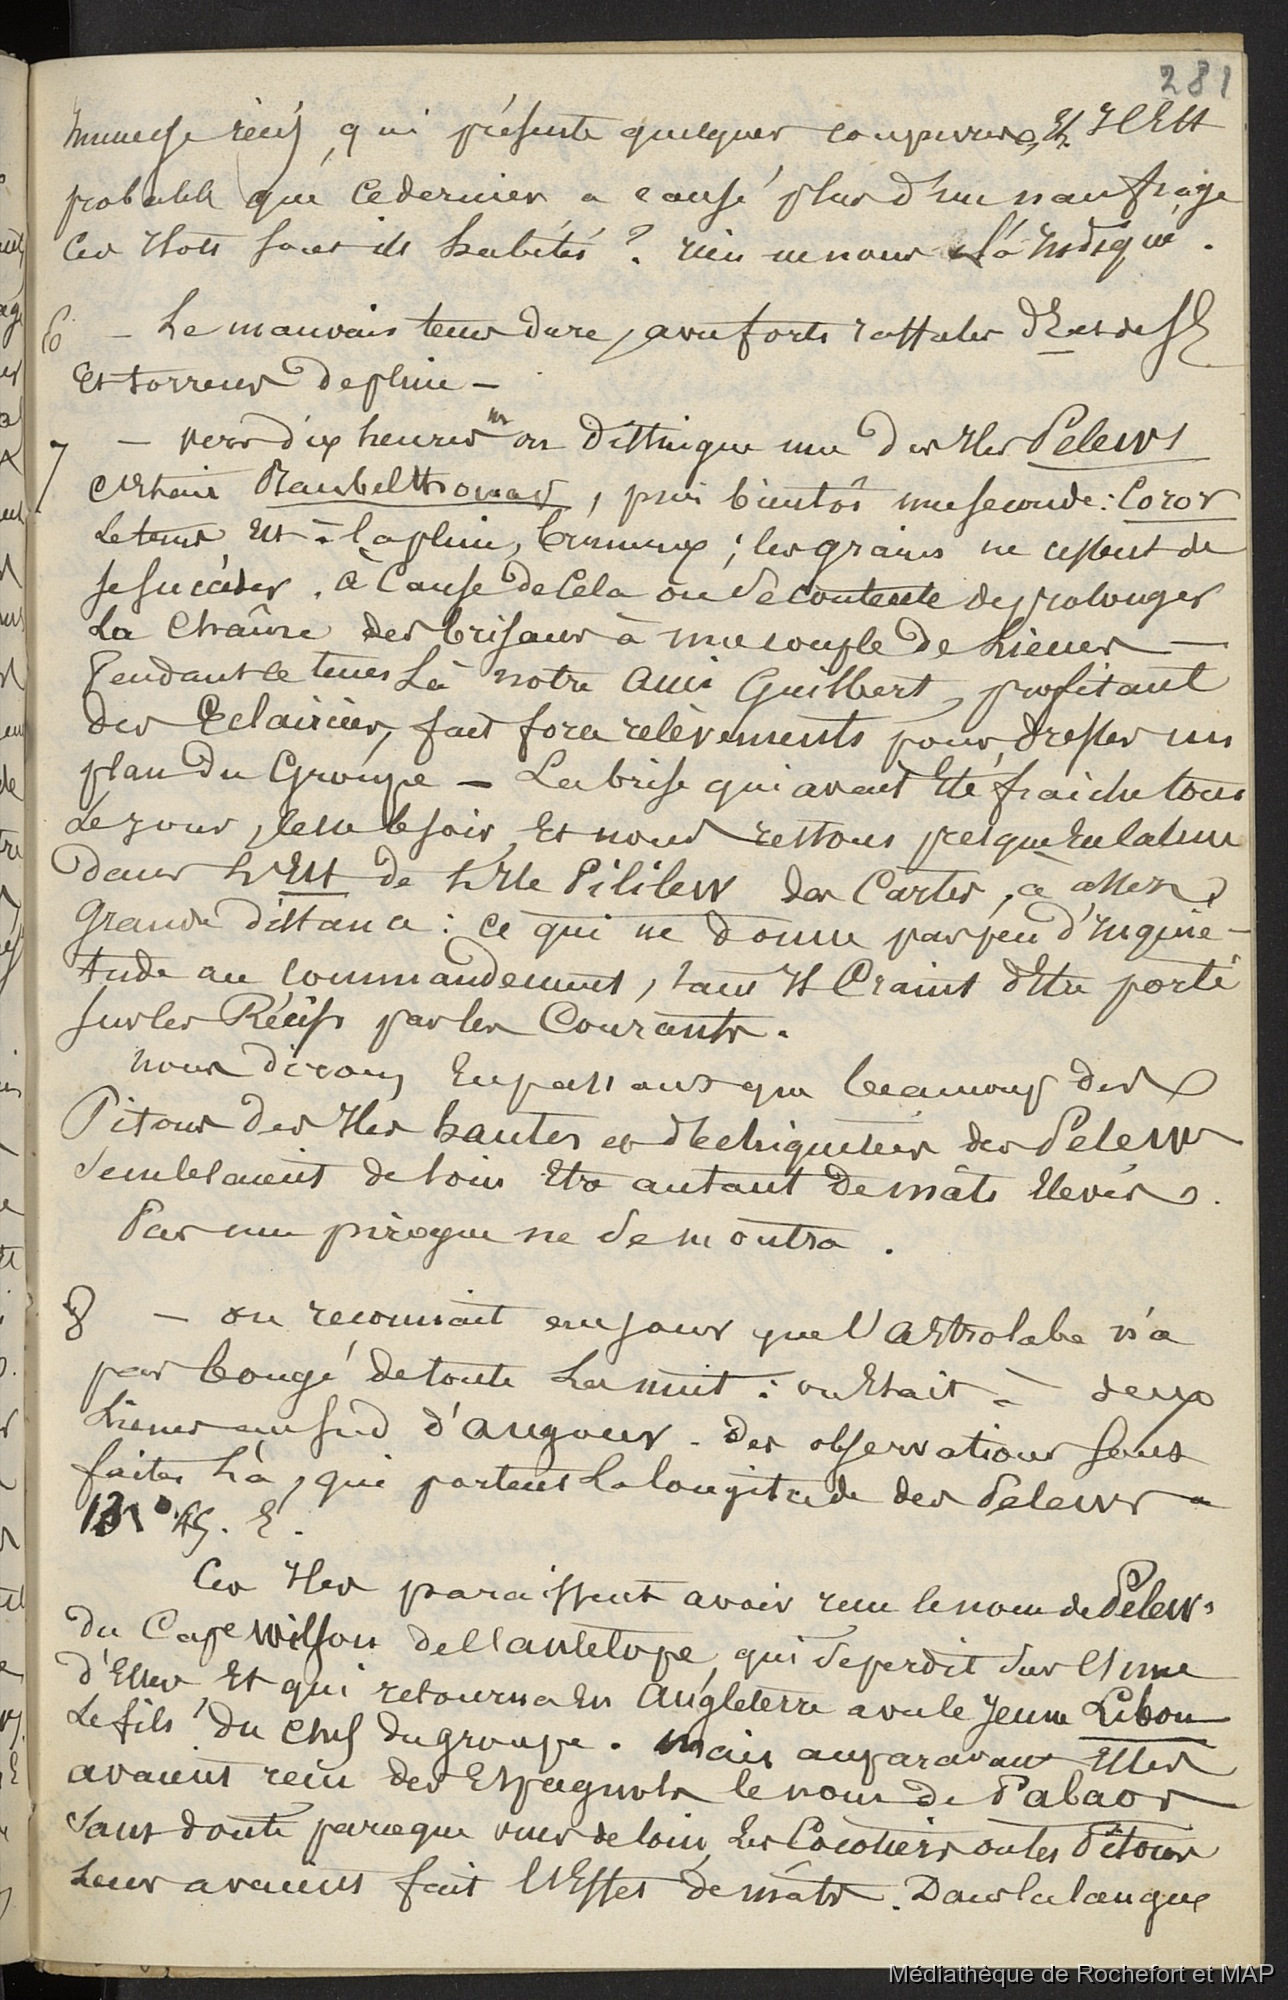 281
immense récif, qui présente quelques coupures, Et Il Est
probable que ce dernier a causé plus d'un naufrage
Ces Ilots sont ils habités ? rien ne nous l'a Indiqué.
6 – Le mauvais tems dure, avec forts raffales d'Est et de SE
Et torrens de pluie –
7 – vers dix heures on distingue une des Iles Pelews
c'Etait Baubelthouap, puis bientôt une seconde : Coror
Le tems Est à la pluie, brumeux ; les grains ne cessent de
se succéder. à Cause de Cela on se contente de prolonger
La Chaîne des brisans à une couple de Lieues –
Pendant ce tems Là notre ami Guilbert, profitant
des Eclaircies, fait force relèvements pour dresser un
plan du Groupe – La brise qui avait Eté fraiche tout
Le jour, cesse le soir, Et nous restons presque En calme
dans L'Est de L'Ile Pililew des Cartes, à assez
Grande distance : ce qui ne donne pas peu d'Inquié-
tude au commandement, tant Il Craint d'Etre porté
sur les Récifs par les Courants.
nous dirons En passant que beaucoup des
Pitons des Iles hautes et déchiquetées des Pelew
semblaient de loin Etre autant de mâts Elevés.
Pas une pirogue ne se montra.
8 – on reconnait au jour que l'Astrolabe n'a
pas bougé de toute La nuit : on Etait à deux
Lieues au sud d'angour. Des observations sont
faites Là, qui portent La longitude des Pelews à
131° 45. E.
Ces Iles paraissent avoir reçu le nom de Pelew,
du Cape Wilson de l'antelope, qui se perdit sur l'Une
d'Elles Et qui retourna En Angleterre avec le jeune Libou
Le fils du chef du groupe. Mais auparavant Elles
avaient reçu des Espagnols le nom de Palaos
sans doute parceque vus de loin, Les Cocotiers ou les Pitons
Leur avaient fait l'Effet de mâts. Dans la langue
Médiathèque de Rochefort et MAP